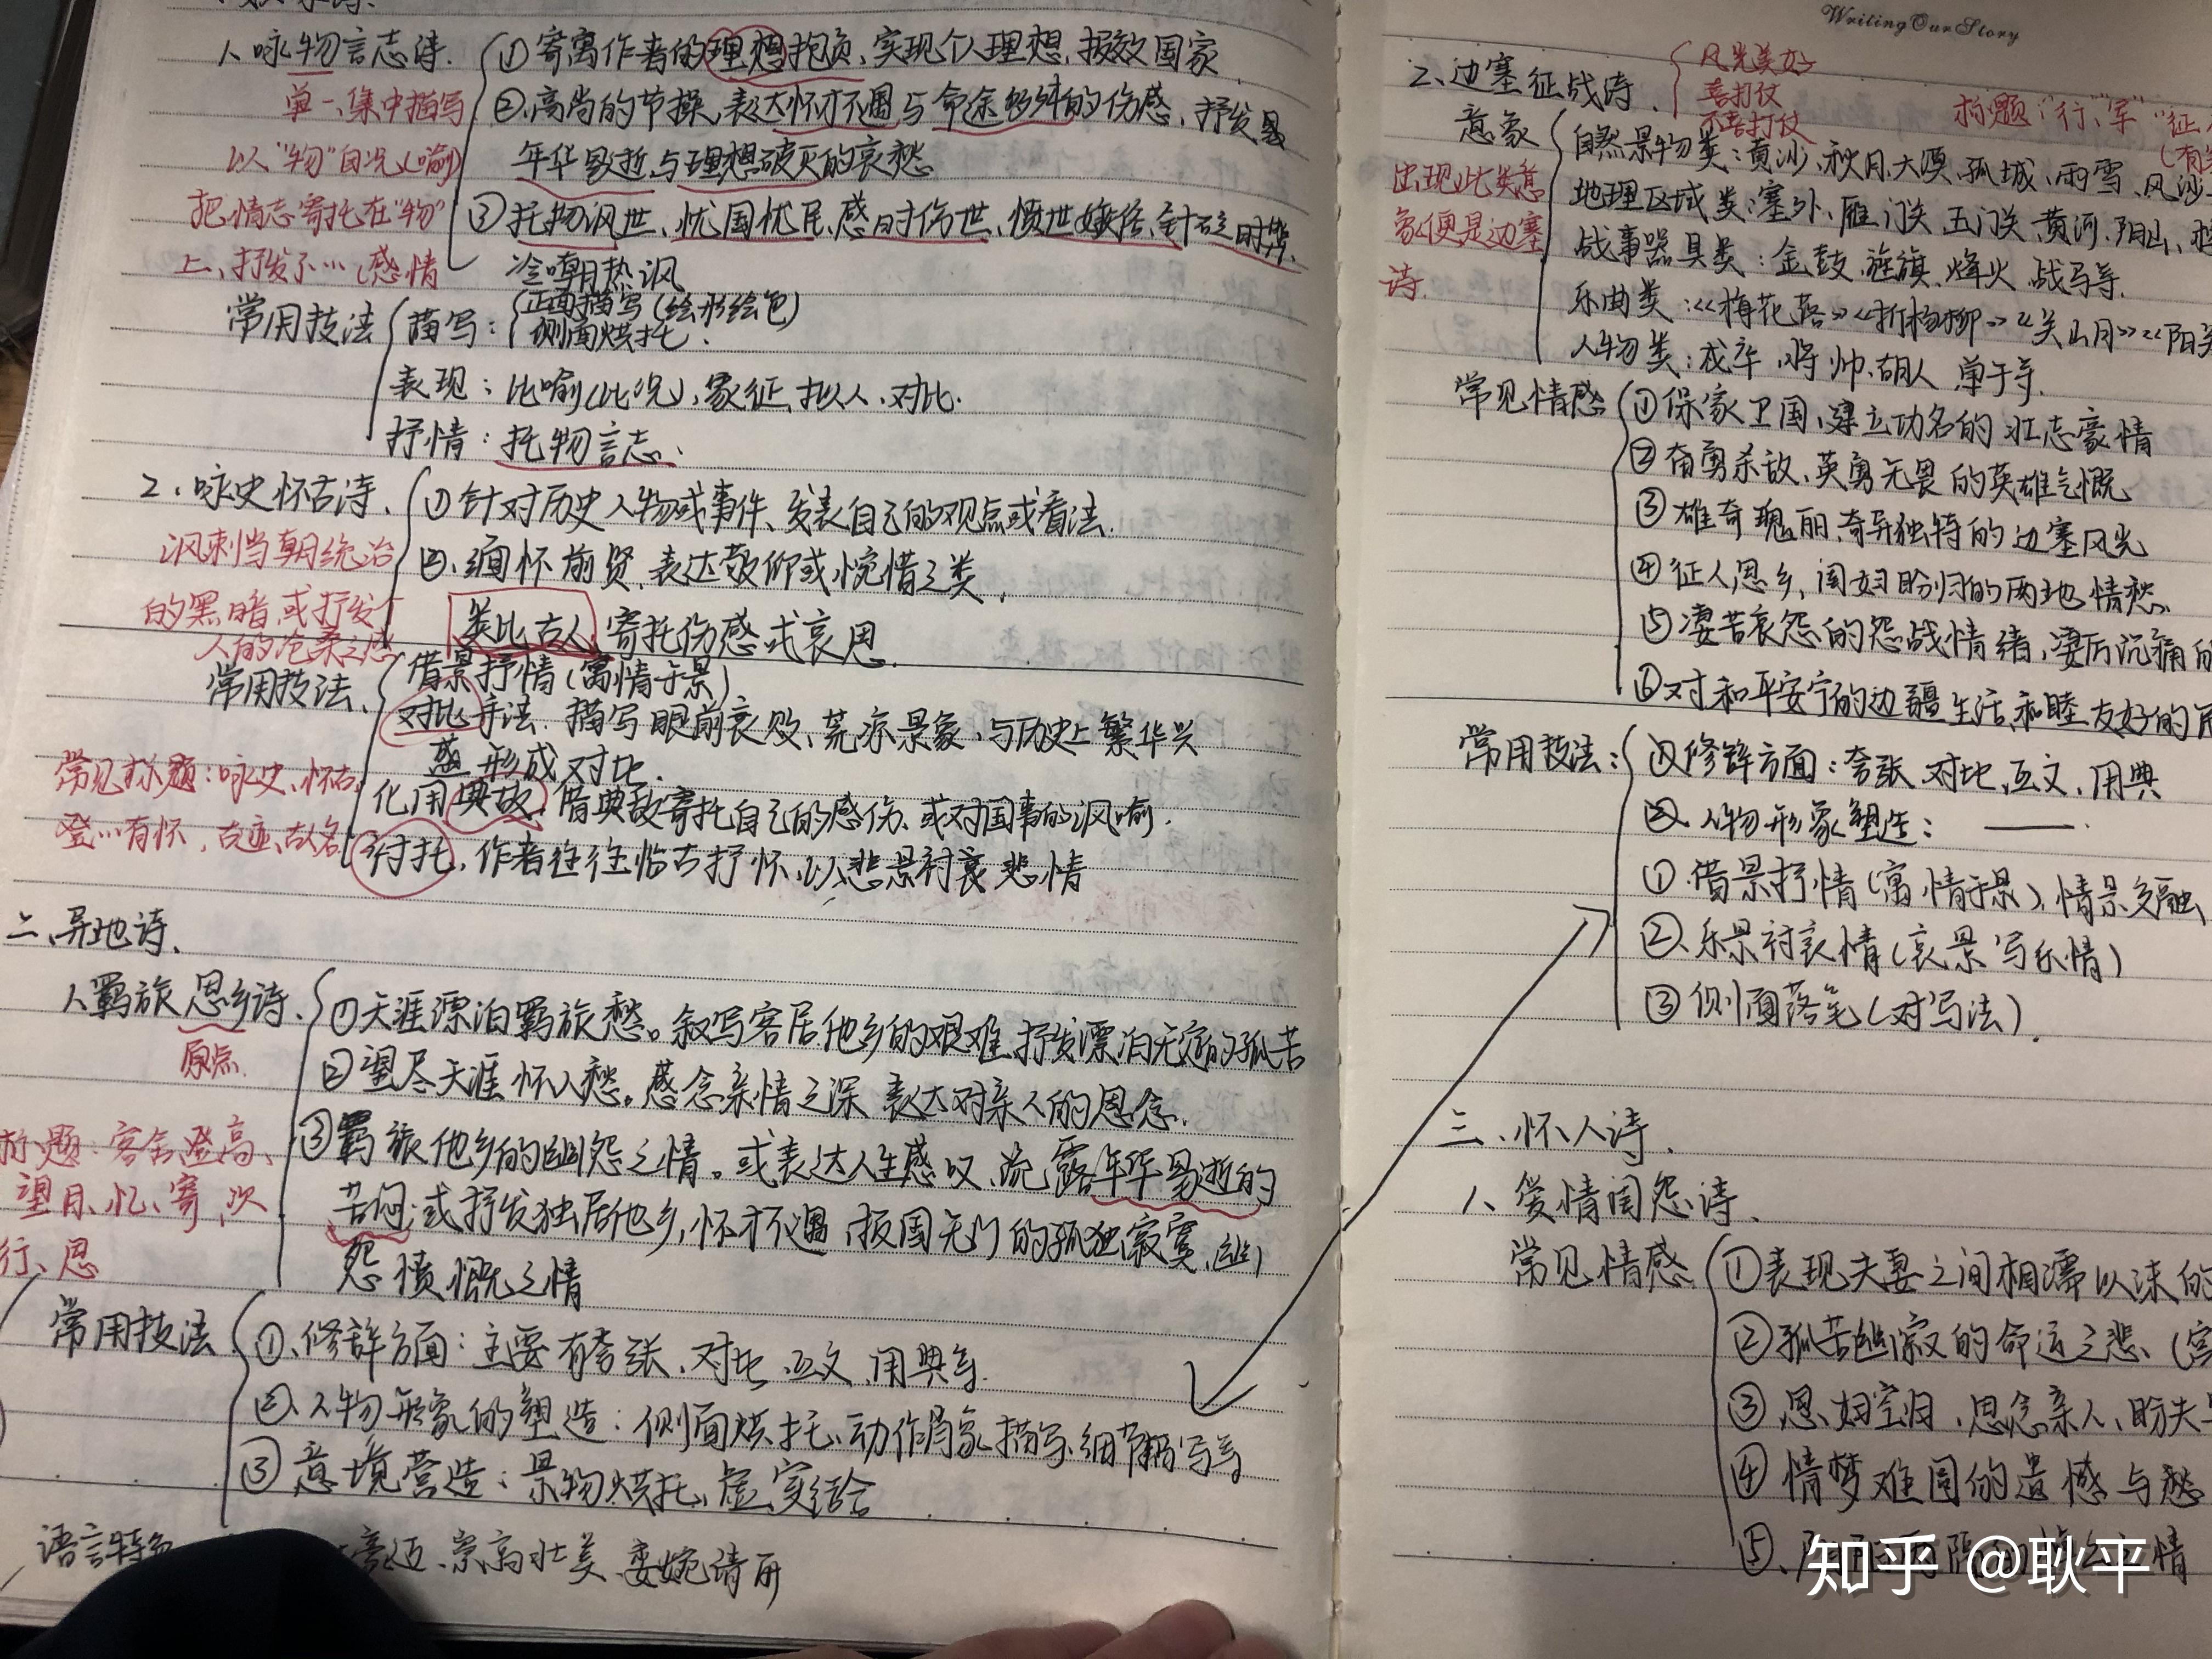 1、咏物言志诗.
①寄寓作者的理想抱负,实现个人理想,报效国家
单一、集中描写
②、高尚的节操,表达怀才不遇与命途多舛的伤感、抒发
以"物"自况(喻)
年华易逝与理想破灭的哀愁
把情志寄托在"物"
③托物讽世、忧国忧民、感时伤世、愤世嫉俗、针砭时弊、
上、抒发了…(感情
冷嘲热讽
常用技法
描写:
正面描写(绘形绘色)
侧面烘托.
表现:比喻(比况)、象征、拟人、对比.
抒情:托物言志.
2、咏史怀古诗、
①针对历史人物或事件、发表自己的观点或看法.
讽刺当朝统治
②、缅怀前贤、表达敬仰或惋惜之类,
的黑暗或抒发
类比古人,寄托伤感或哀思.
人的沧桑之感
常用技法、
借景抒情(寓情于景)
对比手法.描写眼前衰败、荒凉景象、与历史上繁华兴
盛形成对比.
常见标题:咏史、怀古、
化用典故,借典故寄托自己的感伤、或对国事的讽喻.
登…有怀,古迹、古人名
衬托,作者往往临古抒怀、以悲景衬哀悲情
二、异地诗、
1、羁旅思乡诗、
①天涯漂泊羁旅愁。叙写客居他乡的艰难,抒发漂泊无定的孤苦
原点.
②望尽天涯怀人愁。感念亲情之深 表达对亲人的思念.
标题:客舍、登高、
③羁旅他乡的幽怨之情。或表达人生感叹,流露年华易逝的
望月、忆、寄、次
苦闷:或抒发独居他乡,怀才不遇,报国无门的孤独寂寞、幽
行、思
怨愤慨之情
常用技法
①、修辞方面:主要有夸张、对比、互文、用典等.
②、人物形象的塑造:侧面烘托、动作肖象描写、细节描写等
③意境营造:景物烘托、虚实结合
语言特色
豪迈、崇高壮美、委婉清丽
Writing Our Story
2、边塞征战诗、
风光美好
喜打仗
不喜打仗
标题:"行"、"军""征、
意象
自然景物类:黄沙、秋月、大漠、孤城、雨雪、风沙
出现此类意
地理区域类:塞外、雁门关、玉门关、黄河、阴山、
象便是边塞
战事器具类:金鼓、旌旗、烽火、战马等.
诗.
乐曲类:《梅花落》《折杨柳》《关山月》《阳关
人物类:戍卒、将帅、胡人 单于等.
常见情感
①保家卫国、建立功名的壮志豪情
②奋勇杀敌、英勇无畏的英雄气慨
③雄奇瑰丽、奇异独特的边塞风光
④征人思乡,闺妇盼归的两地情愁、
⑤凄苦哀怨的怨战情绪,凄厉沉痛的
⑥对和平安宁的边疆生活和睦友好的
常用技法:
①修辞方面:夸张、对比、互文、用典
②、人物形象塑造:——.
①借景抒情(寓情于景),情景交融
②、乐景衬哀情(哀景写乐情)
③侧面落笔(对写法).
三、怀人诗、
1、爱情闺怨诗、
常见情感
①表现夫妻之间相濡以沫的
②孤苦幽寂的命运之悲、(宫
③、思妇空闺、思念亲人、盼夫
④情梦难圆的遗憾与愁
⑤、
知乎 @耿平